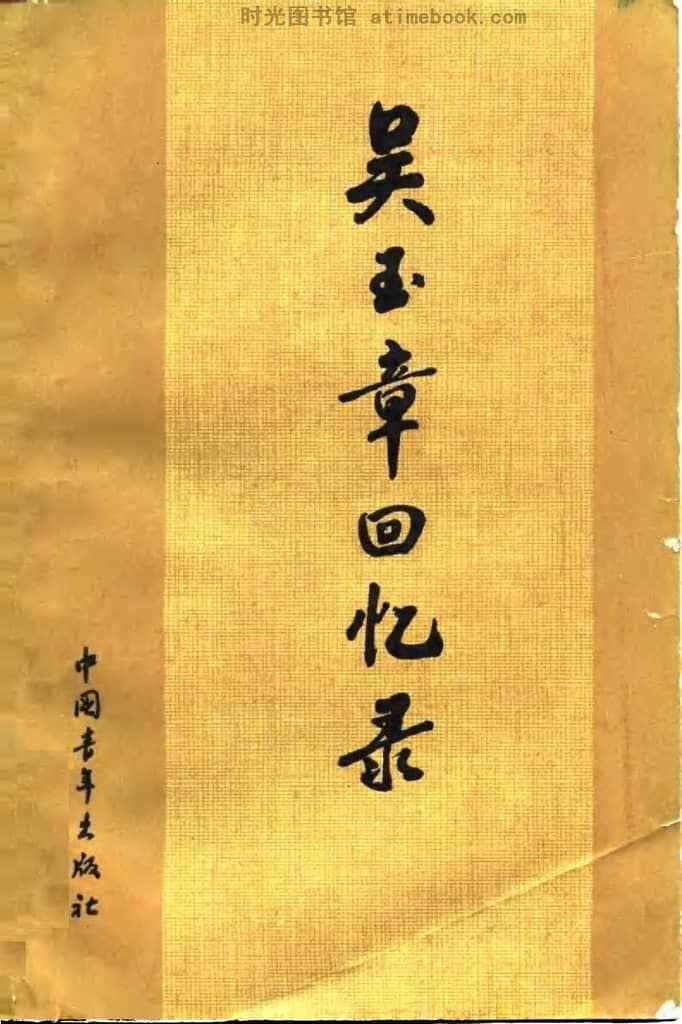 时光图书馆 atimebook.com
吴玉章回忆录
中国青年出版社